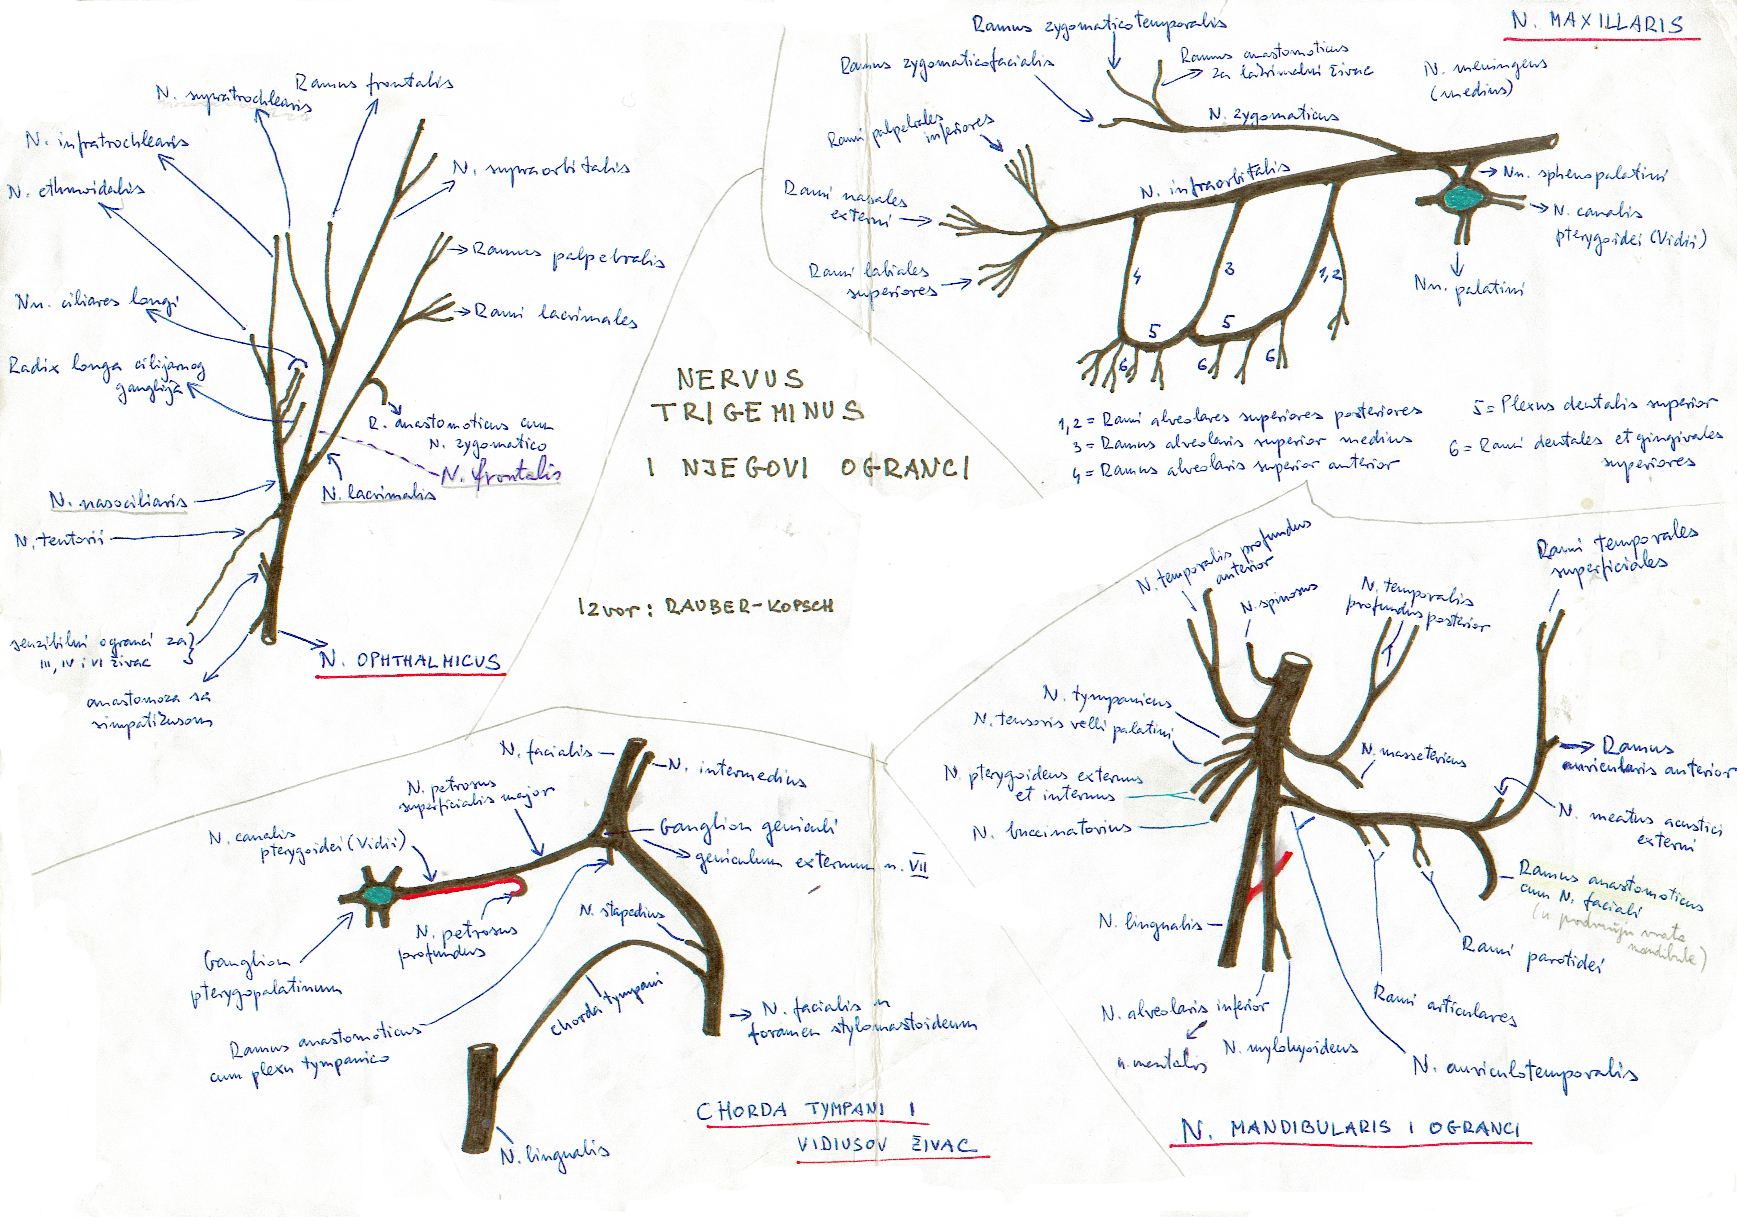 NERVUS
TRIGEMINUS
I NJEGOVI OGRANCI
Izvor: RAUBER-KOPSCH
Ramus frontalis
N. supratrochlearis
N. infratrochlearis
N. ethmoidalis
N. supraorbitalis
Ramus palpebralis
Nn. ciliares longi
Rami lacrimales
Radix longa cilijarnog
ganglija
R. anastomoticus cum
N. zygomatico
N. frontalis
N. lacrimalis
N. nasociliaris
N. tentorii
senzibilni ogranci za
III, IV i VI živac
anastomoza sa
simpatikusom
N. OPHTHALMICUS
N. MAXILLARIS
Ramus zygomaticotemporalis
Ramus zygomaticofacialis
Ramus anastomoticus
za lakrimalni živac
N. meningeus
(medius)
N. zygomaticus
Rami palpebrales
inferiores
N. infraorbitalis
Nn. sphenopalatini
Rami nasales
externi
N. canalis
pterygoidei (Vidii)
Rami labiales
superiores
Nn. palatini
4
3
1,2
5
5
6
6
6
1,2 = Rami alveolares superiores posteriores
3 = Ramus alveolaris superior medius
4 = Ramus alveolaris superior anterior
5 = Plexus dentalis superior
6 = Rami dentales et gingivales
superiores
N. facialis
N. intermedius
N. petrosus
superficialis major
N. canalis
pterygoidei (Vidii)
Ganglion geniculi
geniculum externum n. VII
N. stapedius
N. petrosus
profundus
Ganglion
pterygopalatinum
chorda tympani
Ramus anastomoticus
cum plexu tympanico
N. facialis u
foramen stylomastoideum
N. lingualis
CHORDA TYMPANI I
VIDIUSOV ŽIVAC
N. temporalis profundus
anterior
N. spinosus
N. temporalis
profundus posterior
Rami temporales
superficiales
N. tympanicus
N. tensoris velli palatini
N. pterygoideus externus
et internus
N. buccinatorius
N. massetericus
Ramus
auricularis anterior
N. meatus acustici
externi
Ramus anastomoticus
cum N. faciali
(u području vrata
mandibule)
N. lingualis
Rami parotidei
Rami articulares
N. alveolaris inferior
n. mentalis
N. mylohyoideus
N. auriculotemporalis
N. MANDIBULARIS I OGRANCI